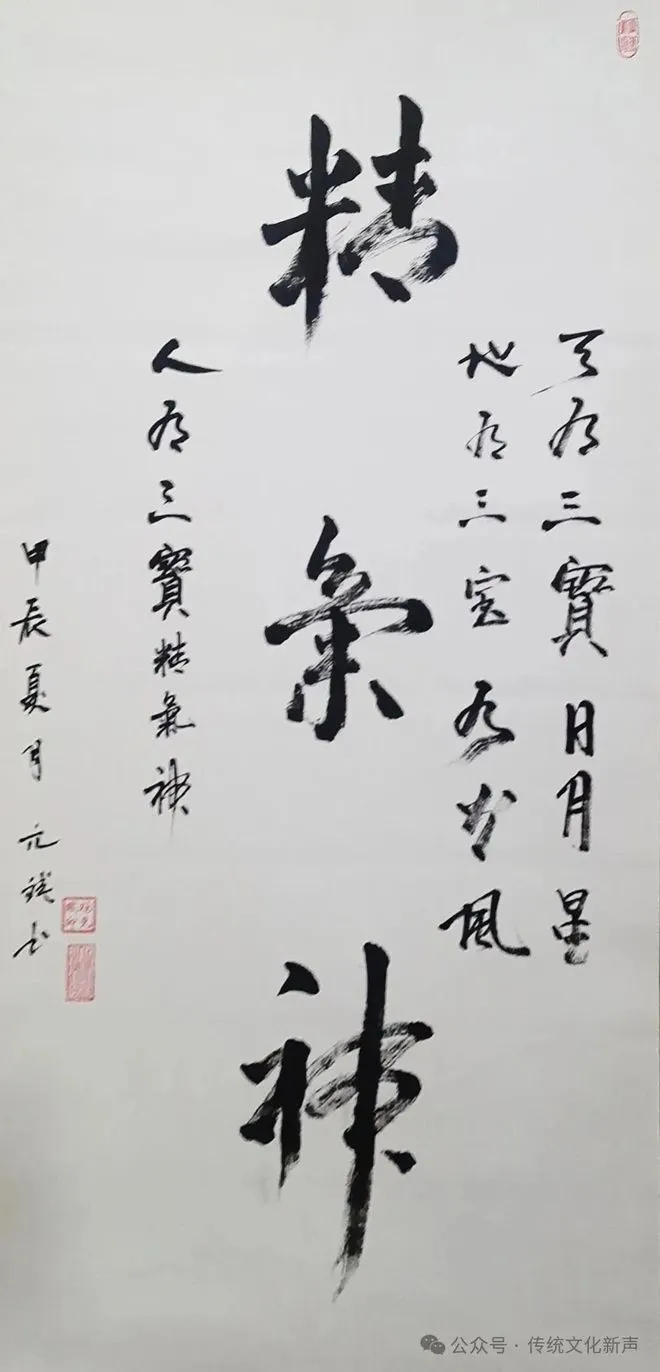 天有三寶日月星
地有三宝水火風
精氣神
人有三寶精氣神
甲辰夏月元书
公众号 · 传统文化新声